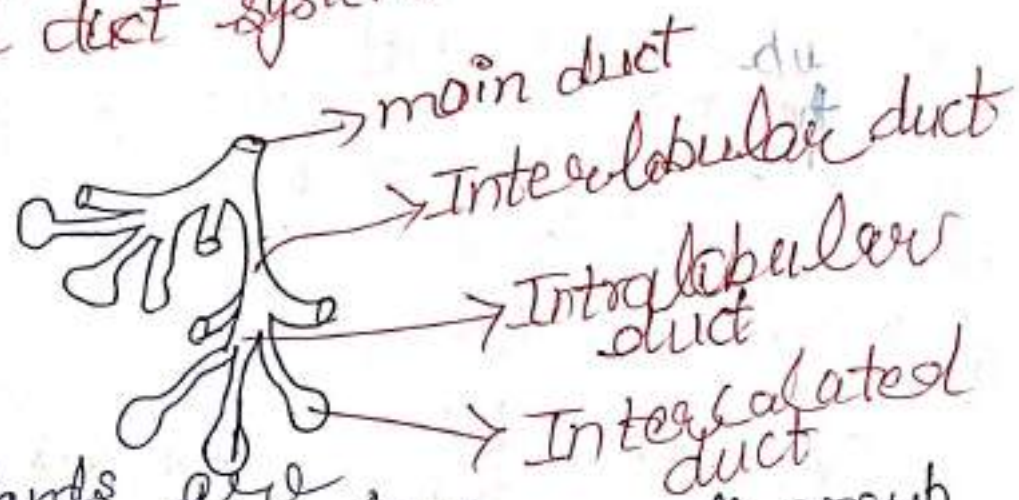 duct system
main duct
du
Interlobular duct
Intralobular
duct
Intercalated
duct
are